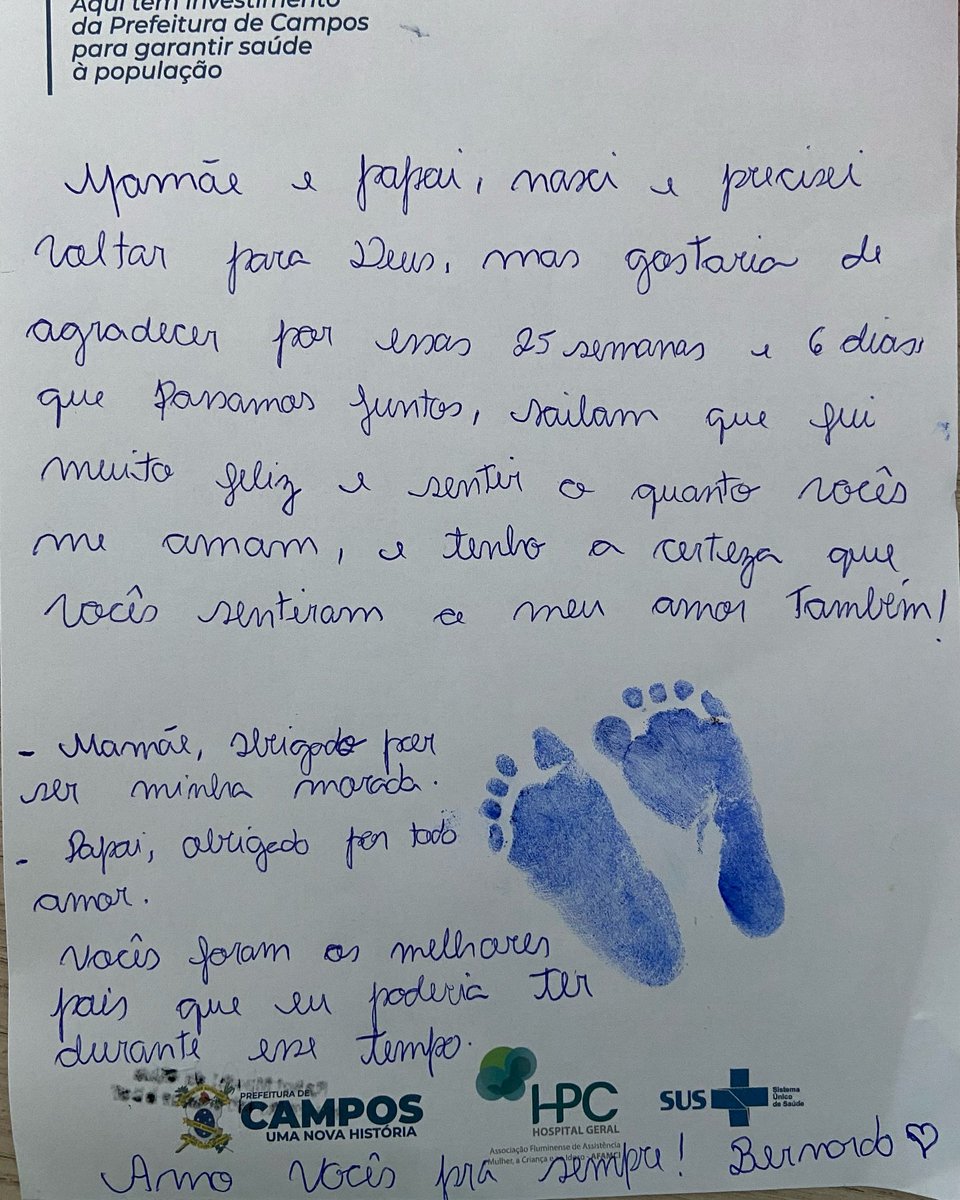 Aqui tem investimento
da Prefeitura de Campos
para garantir saúde
à população
Mamãe e papai, nasci e precisei
voltar para Deus, mas gostaria de
agradecer por essas 25 semanas e 6 dias
que Passamos juntos, saibam que fui
muito feliz e sentir o quanto vocês
me amam, e tenho a certeza que
vocês sentiram o meu amor Também!
- Mamãe, obrigado por
ser minha morada.
- Papai, obrigado por todo
amor.
Vocês foram os melhores
pais que eu poderia ter
durante esse tempo.
PREFEITURA DE
CAMPOS
UMA NOVA HISTÓRIA
HPC
HOSPITAL GERAL
Associação Fluminense de Assistência
Mulher, a Criança e
SUS
Sistema
Único
de Saúde
Amo Vocês pra sempre! Bernardo ♡